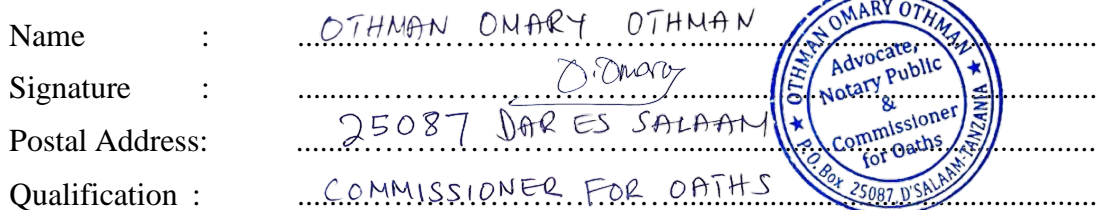 Name : OTHMAN OMARY OTHMAN
Signature : O.Omary
Postal Address: 25087 DAR ES SALAAM
Qualification : COMMISSIONER FOR OATHS
★ OTHMAN OMARY OTHMAN ★
Advocate,
Notary Public
&
Commissioner
for Oaths
P.O. Box 25087, D'SALAAM-TANZANIA